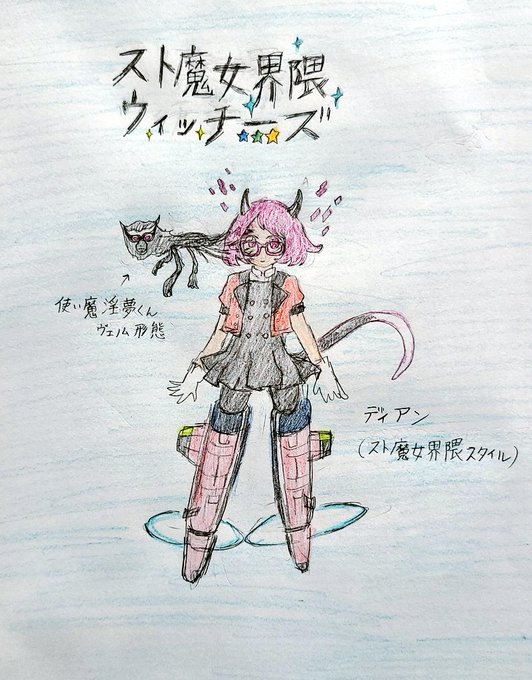 スト魔女界隈
ウィッチーズ
使い魔淫夢くん
ヴェノム形態
ディアン
(スト魔女界隈スタイル)